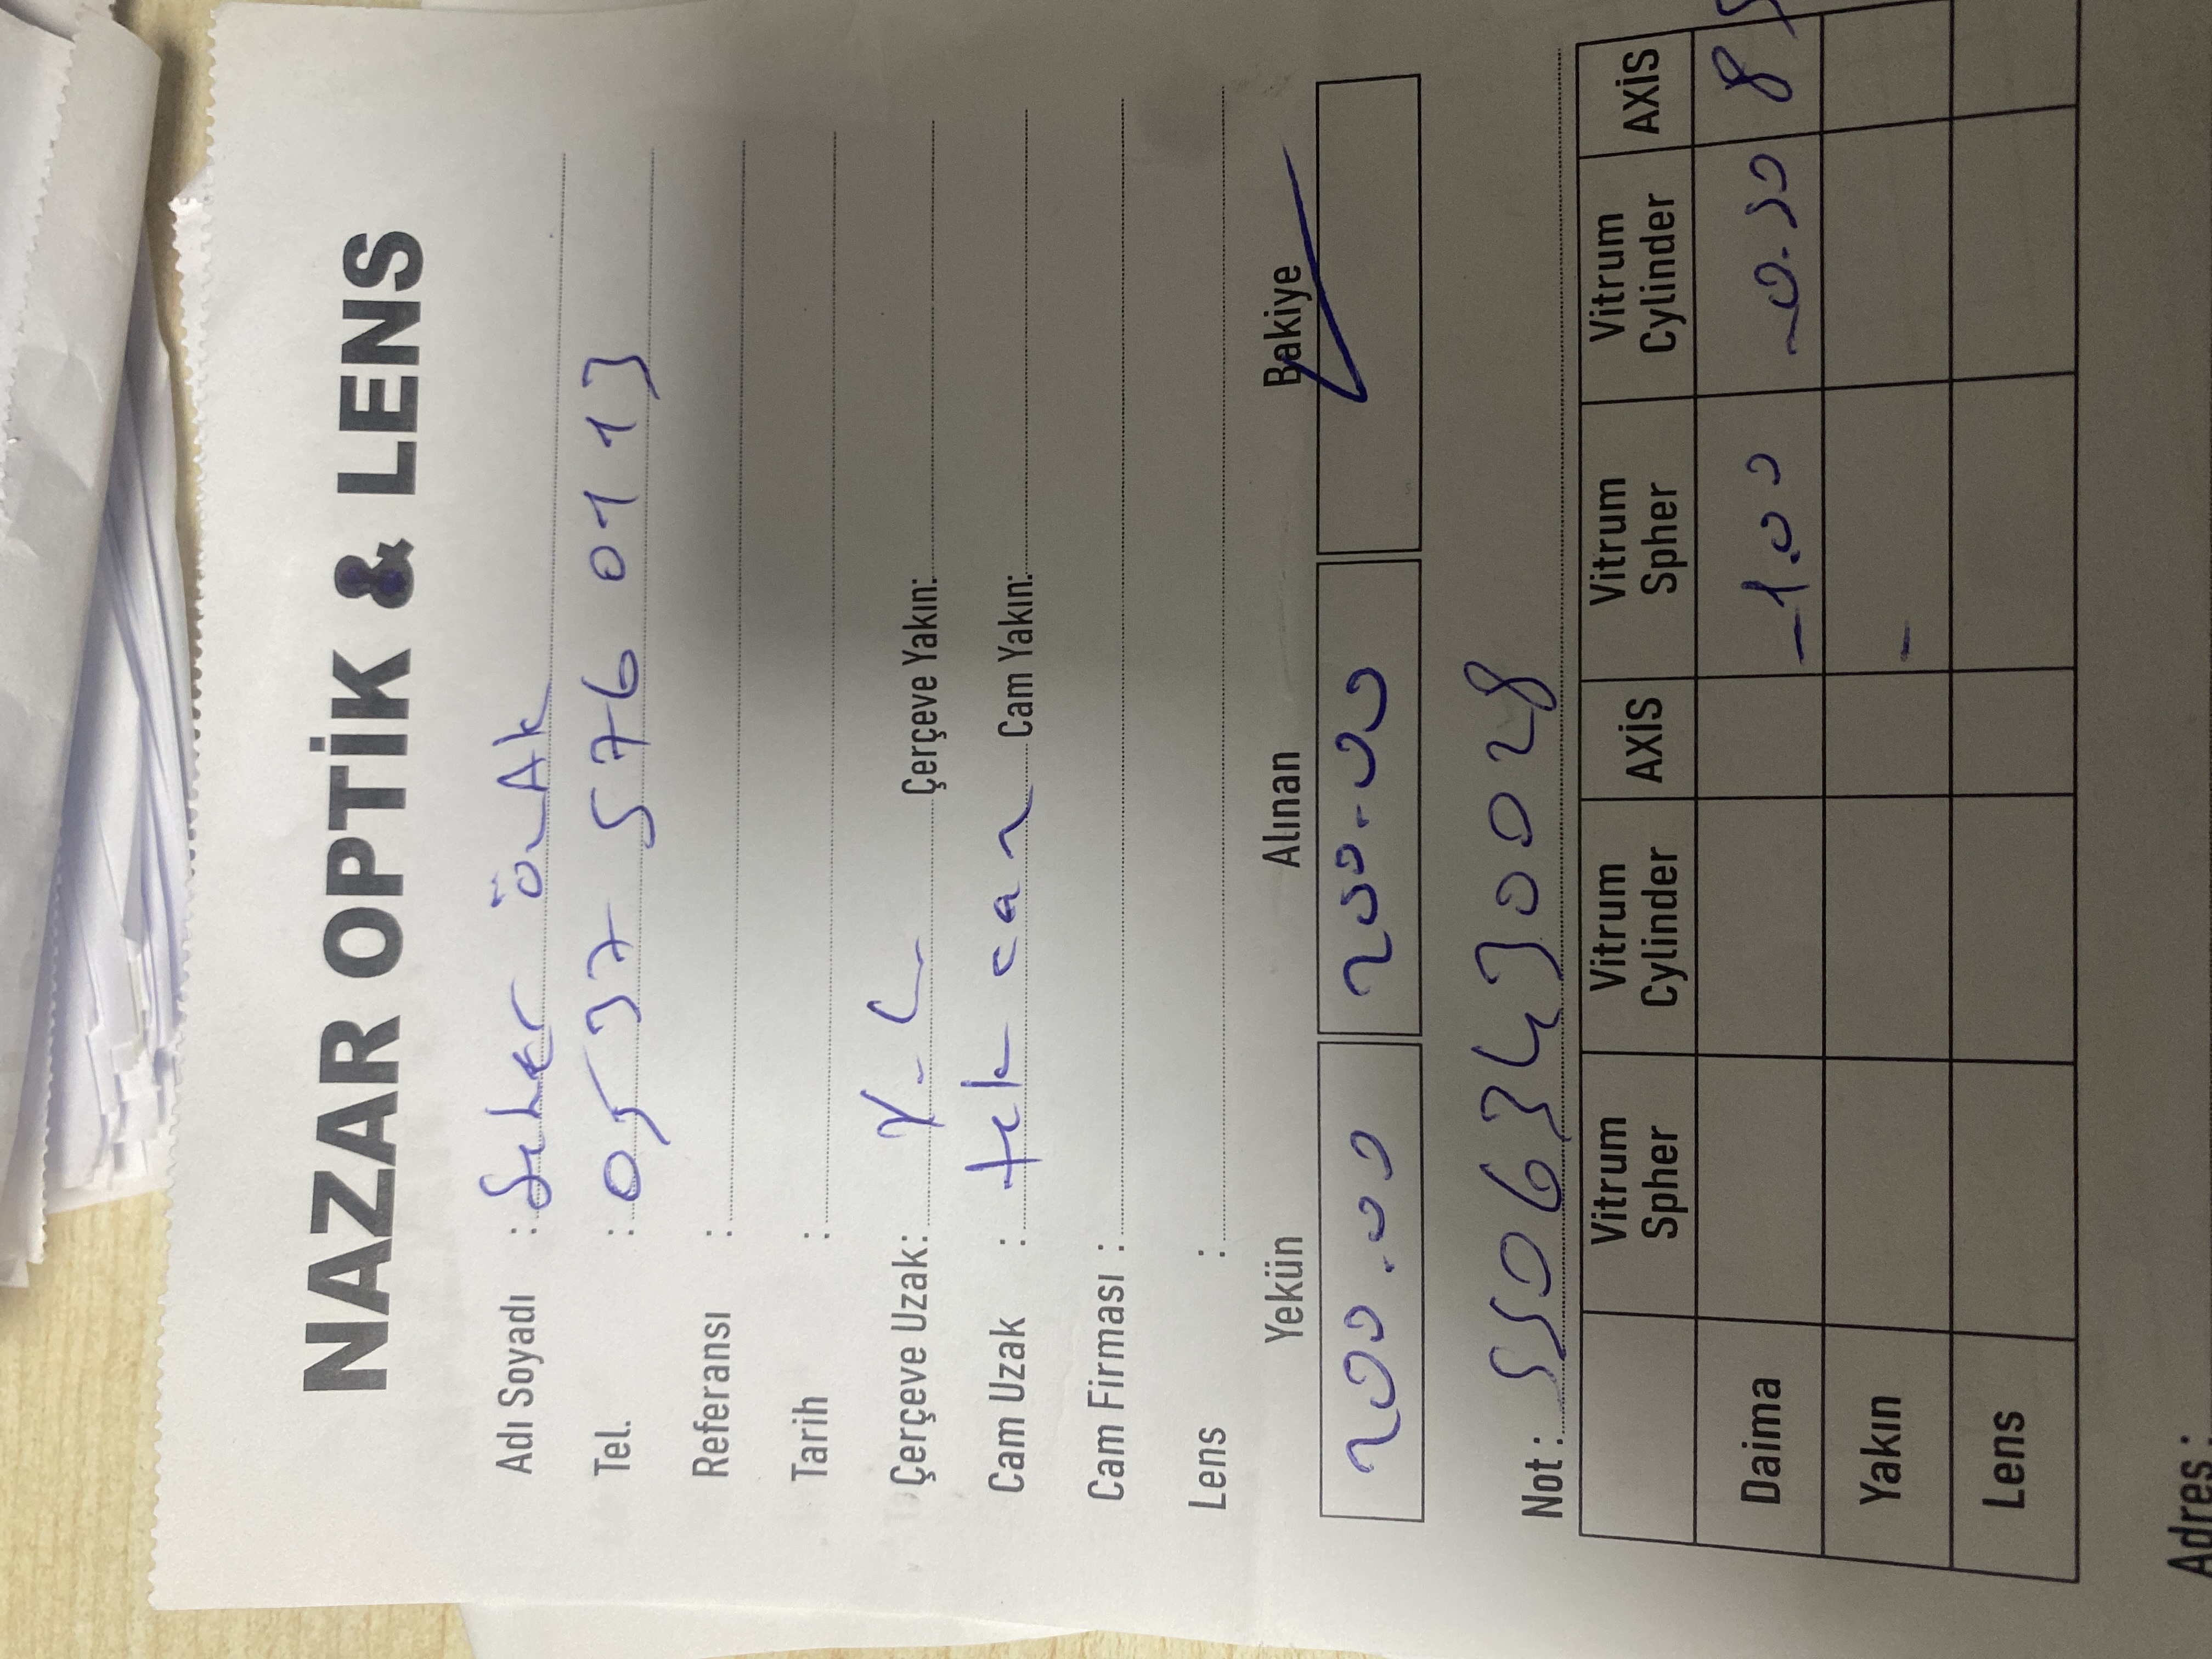 NAZAR OPTİK & LENS
Adı Soyadı : Seher
Tel. : 0537 576 0113
Referansı :
Tarih :
Çerçeve Uzak: Çerçeve Yakın:
Cam Uzak : tek cam Cam Yakın:
Cam Firması :
Lens :
Yekün Alınan Bakiye
200.00 200.00
Not : 55063430028
Vitrum Spher Vitrum Cylinder AXİS Vitrum Spher Vitrum Cylinder AXİS
Daima -1.00 -0.50 85
Yakın -
Lens
Adres :